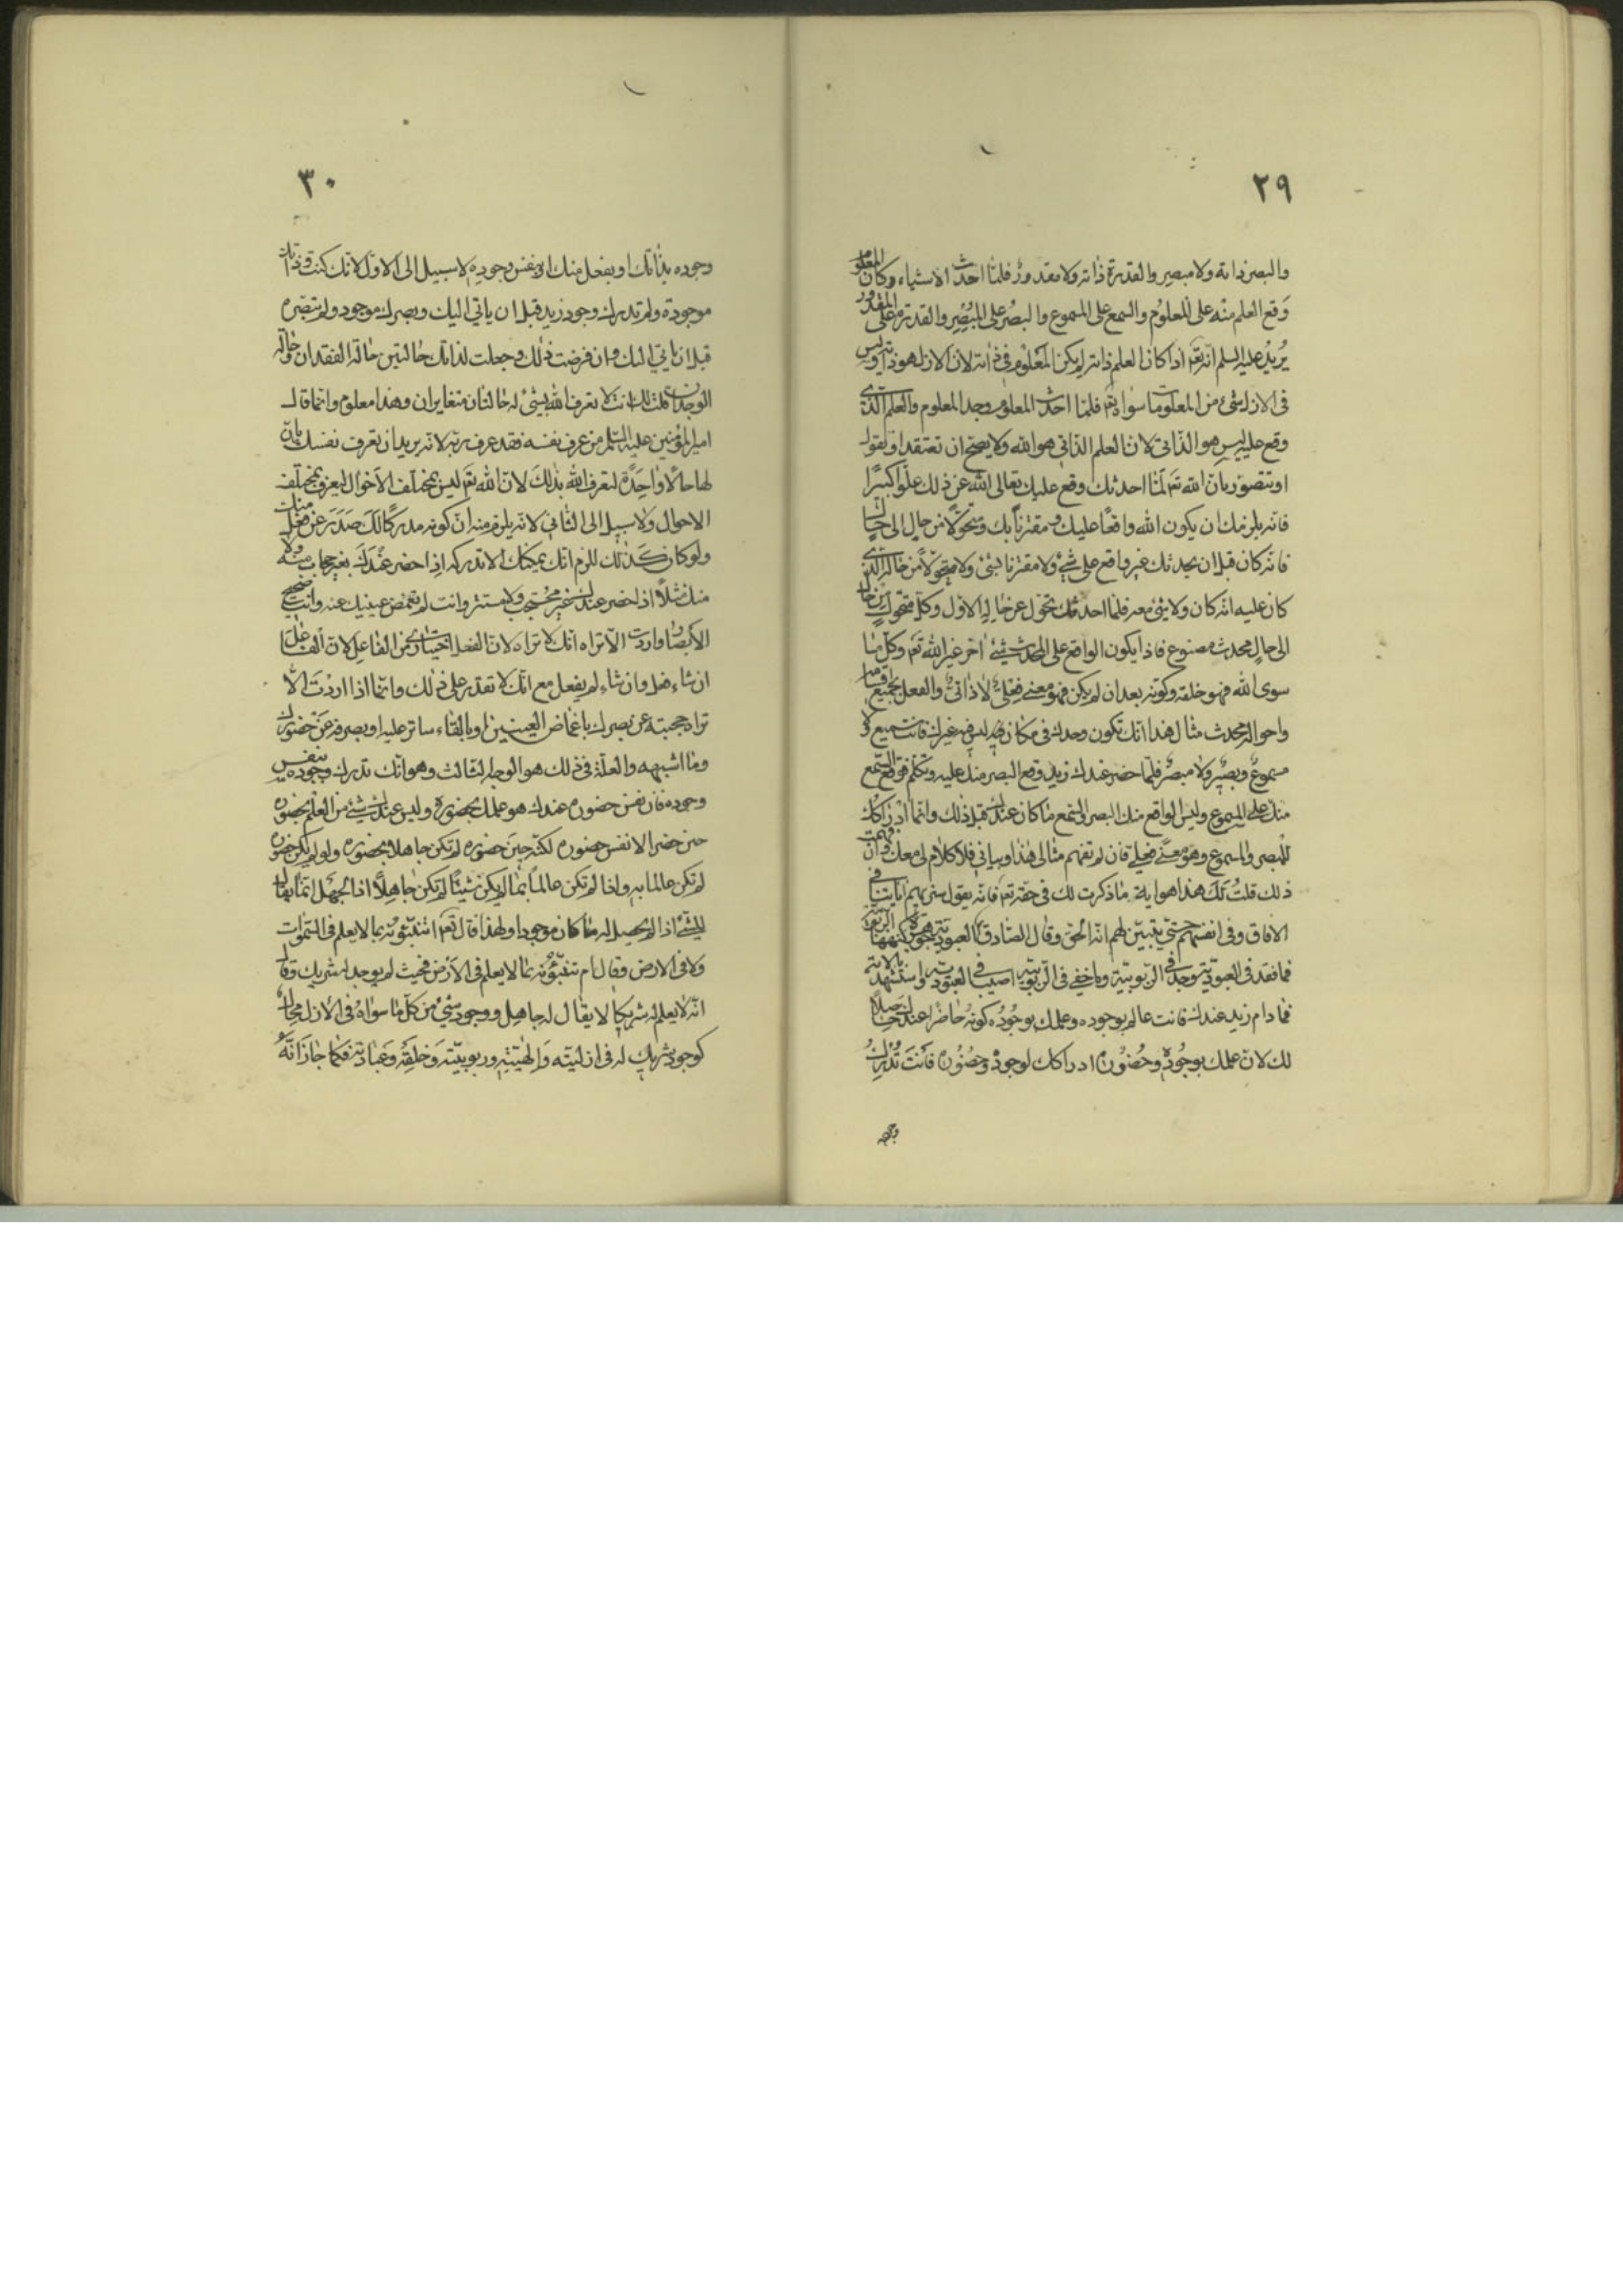 ٢٩
والبصر ذاته ولا مبصر والقدرة ذاته ولا مقدور فلما احدث الاشياء وكان المعلوم
وَقع العلم منه على المعلوم والسمع على المسموع والبصر على المبصر والقدرة على المقدور
يُريدُ عليه السلم انه تعَم اذا كان العلم ذاته لم يكن المعلوم فى ذاته لان الازل هو ذاته وليس
فى الازل شئ من المعلومات سواه تعَم فلما احدث المعلوم وجد المعلوم والعلم الذى
وقع عليه ليس هو الذاتى لان العلم الذاتى هو الله ولا يصح ان تعتقد او تقول
او تتصور بان الله تعَم لمّا احدثك وقع عليك تعالى الله عن ذلك علوّا كبيرًا
فانه يلزمك ان يكون الله واقعًا عليك ومقترناً بك ومتحولا من حال الى حال
فانه كان قبل ان يحدثك غير واقع على شئ ولا مقترنا بشئ ولا متحولاً من حاله الذى
كان عليه انه كان ولا شئ معه فلما احدثك تحول عن حاله الاول وكل متحول من حال
الى حال محدث مصنوع فاذا يكون الواقع على المحدث شئ اخر غير الله تعَم وكل ما
سوى الله فهو خلقه وكونه بعد ان لم يكن فهو معنى فعلى لا ذاتى والفعل بجميع اقسامه
واحواله محدث مثال هذا انك تكون وحدك فى مكان ليس فيه غيرك فانت سميع لا
مسموع وبصير ولا مبصر فلما حضر عندك زيد وقع البصر منك عليه وتكلم فوقع السمع
منك على المسموع وليس الواقع منك البصر والسمع ما كان عندك قبل ذلك وانما ادراكك
للمبصر والمسموع وهو معنى فعلى فان لم تفهم مثالى هذا وبيانى فلا كلام لى معك وان فهمت
ذلك قلتُ لَكَ هذا هو اية ما ذكرت لك فى حقه تعَم فانه يقول سنريهم اياتنا فى
الافاق وفى انفسهم حتى يتبين لهم انه الحق وقال الصادق ع العبودية جوهرة كنهها الربوبية
فما فقد فى العبودية وجد فى الربوبية وما خفى فى الربوبية اصيب فى العبودية واستشهد بالاية
فما دام زيد عندك فانت عالم بوجوده وعلمك بوجوده كونه حاضرا عندك حاصلاً
لك لان علمك بوجوده وحضوره ادراكك لوجوده وحضوره فانت تُدرك
وجوده
٣٠
وجوده بذاتك او بفعل منك او بنفس وجوده لا سبيل الى الاول لانك كنت وذاتك
موجودة ولم تدرك وجود زيد قبل ان ياتى اليك وبصرك موجود ولم تبصره
قبل ان ياتى اليك وان فرضت ذلك وجعلت لذاتك حالتين حالة الفقدان وحالة
الوجدان قلت لك انت لا تعرف الله بشئ له حالتان متغايران وهذا معلوم وانما قال
امير المؤمنين عليه السلم من عرف نفسه فقد عرف ربه لانه يريد ان تعرف نفسك بان
لها حالًا واحدة لتعرف الله بذلك لان الله تعَم ليس بمختلف الاحوال ليعرف بمختلف
الاحوال ولا سبيل الى الثانى لانه يلزم منه ان كونه مدركًا لك صدر عن فعل منك
ولو كان كذلك للزم انك يمكنك الا تدركه اذا حضر عندك بغير حجاب منه ولا
منك مثلاً اذا حضر عندك غير محتجب ولا مستتر وانت لم تغمض عينيك عنه وانت صحيح
الابصار واردت الا تراه انك لا تراه لان الفعل اختيارى من الفاعل لان الفاعل
ان شاء فعل وان شاء لم يفعل مع انك لا تقدر على ذلك وانما اذا اردت الّا
تراه حجبته عن بصرك باغماض العينين او بالقاء ساتر عليه او بصرفه عن حضورك
وما اشبهه والعلة فى ذلك هو الوجه الثالث وهو انك تدرك وجوده بنفس
وجوده فان نفس حضوره عندك هو علمك بحضوره وليس عندك شئ من العلم بحضوره
حين حضر الا نفس حضوره لكنه حين حضوره لم تكن جاهلا بحضوره ولو لم يكن حضوره
لم تكن عالما به واذا لم تكن عالماً بما لم يكن شيئًا لم تكن جاهلاً اذ الجهل انما يقال
للشئ اذا لم يحصل له ما كان موجودا ولهذا قال تعَم اتنبئونه بما لا يعلم فى السموات
ولا فى الارض وقال ام تنبئونه بما لا يعلم فى الارض فحيث لم يوجد له شريك وقال
انه لا يعلم له شريكا لا يقال له جاهل ووجود شئ من كل ما سواه فى الازل محال
كوجود شريك له فى ازليته وَالهيّته وربوبيته وَخلقه وَعبادته فكما جاز انّه